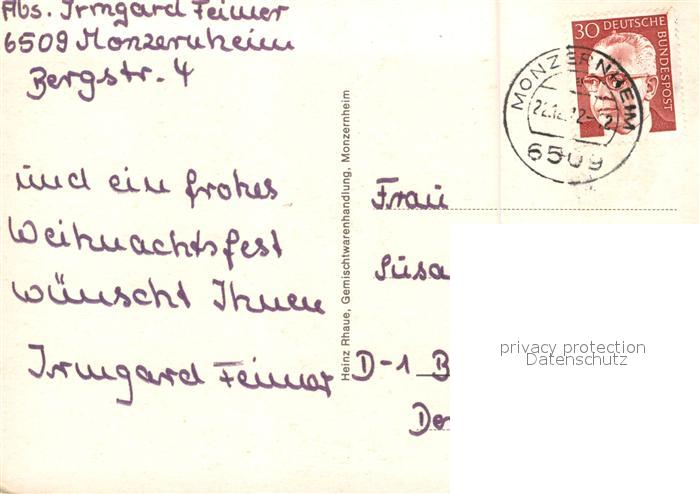 Abs. Irmgard Feimer
6509 Monzernheim
Bergstr. 4
und ein frohes
Weihnachtsfest
wünscht Ihnen
Irmgard Feimer
Heinz Rhaue, Gemischtwarenhandlung, Monzernheim
30 DEUTSCHE BUNDESPOST
MONZERNHEIM
6509
Frau
Susa
D-1 B
privacy protection
Datenschutz